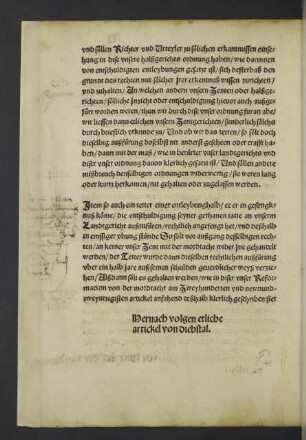 vnd söllen Richter vnd Vrteyler zu sölichen erkantnussen einse-
hung in dise vnsere halßgerichts ordnung haben / wie darinnen
von entschuldigten entleybungen gesatzt ist / sich desterbaß den
grundt des rechten mit sölicher jrer erkentnuß wissen zurichten /
vnd zuhalten / In welichen andern vnsern Zenten oder halßge-
richten / söliche jnzicht oder entschuldigung hieuor auch außge-
fürt worden weren / thun wir durch dise vnser ordnung für an abe /
wir liessen dann etlichen vnsern Zentgerichten / sunderlich sölichs
durch brieflich vrkunde zu / Vnd ob wir das tetten / so sölt doch
dieselbig außfürung doselbst nit anderst gescheen oder crafft ha-
ben / dann mit der maß / wie in berürter vnser landtgerichts vnd
diser vnser ordnung dauon klerlich gesatzt ist / Vnd söllen andere
mißbreuch denselbigen ordnungen widerwertig / sie weren lang
oder kurtz herkomen / nit gehalten oder zugelassen werden.
Item so auch ein tetter einer entleybung halb / ee er in gefengk-
nuß köme / die entschuldigung seyner gethanen tatte an vnserm
Landtgericht außzufüren / rechtlich angefengt het / vnd deßhalb
in emssiger vbung stände So solt vor außgang desselbigen rech-
ten / an keiner vnser Zent mit der mordtacht wider jne gehandelt
werden / der Tetter wurde dann dieselben rechtlichen außfürung
vber ein halb jare außserhalb seinen schulden geuerlicher weyß verzie-
hen / Alßdann sölt es gehalten werden / wie in diser vnser Refor-
macion von der mordtacht am Zweyhunderten vnd neunund-
zweyntzigsten artickel anfahend deßhalb klerlich geschriben stet
Hernach volgen etliche
artickel von diebstal.